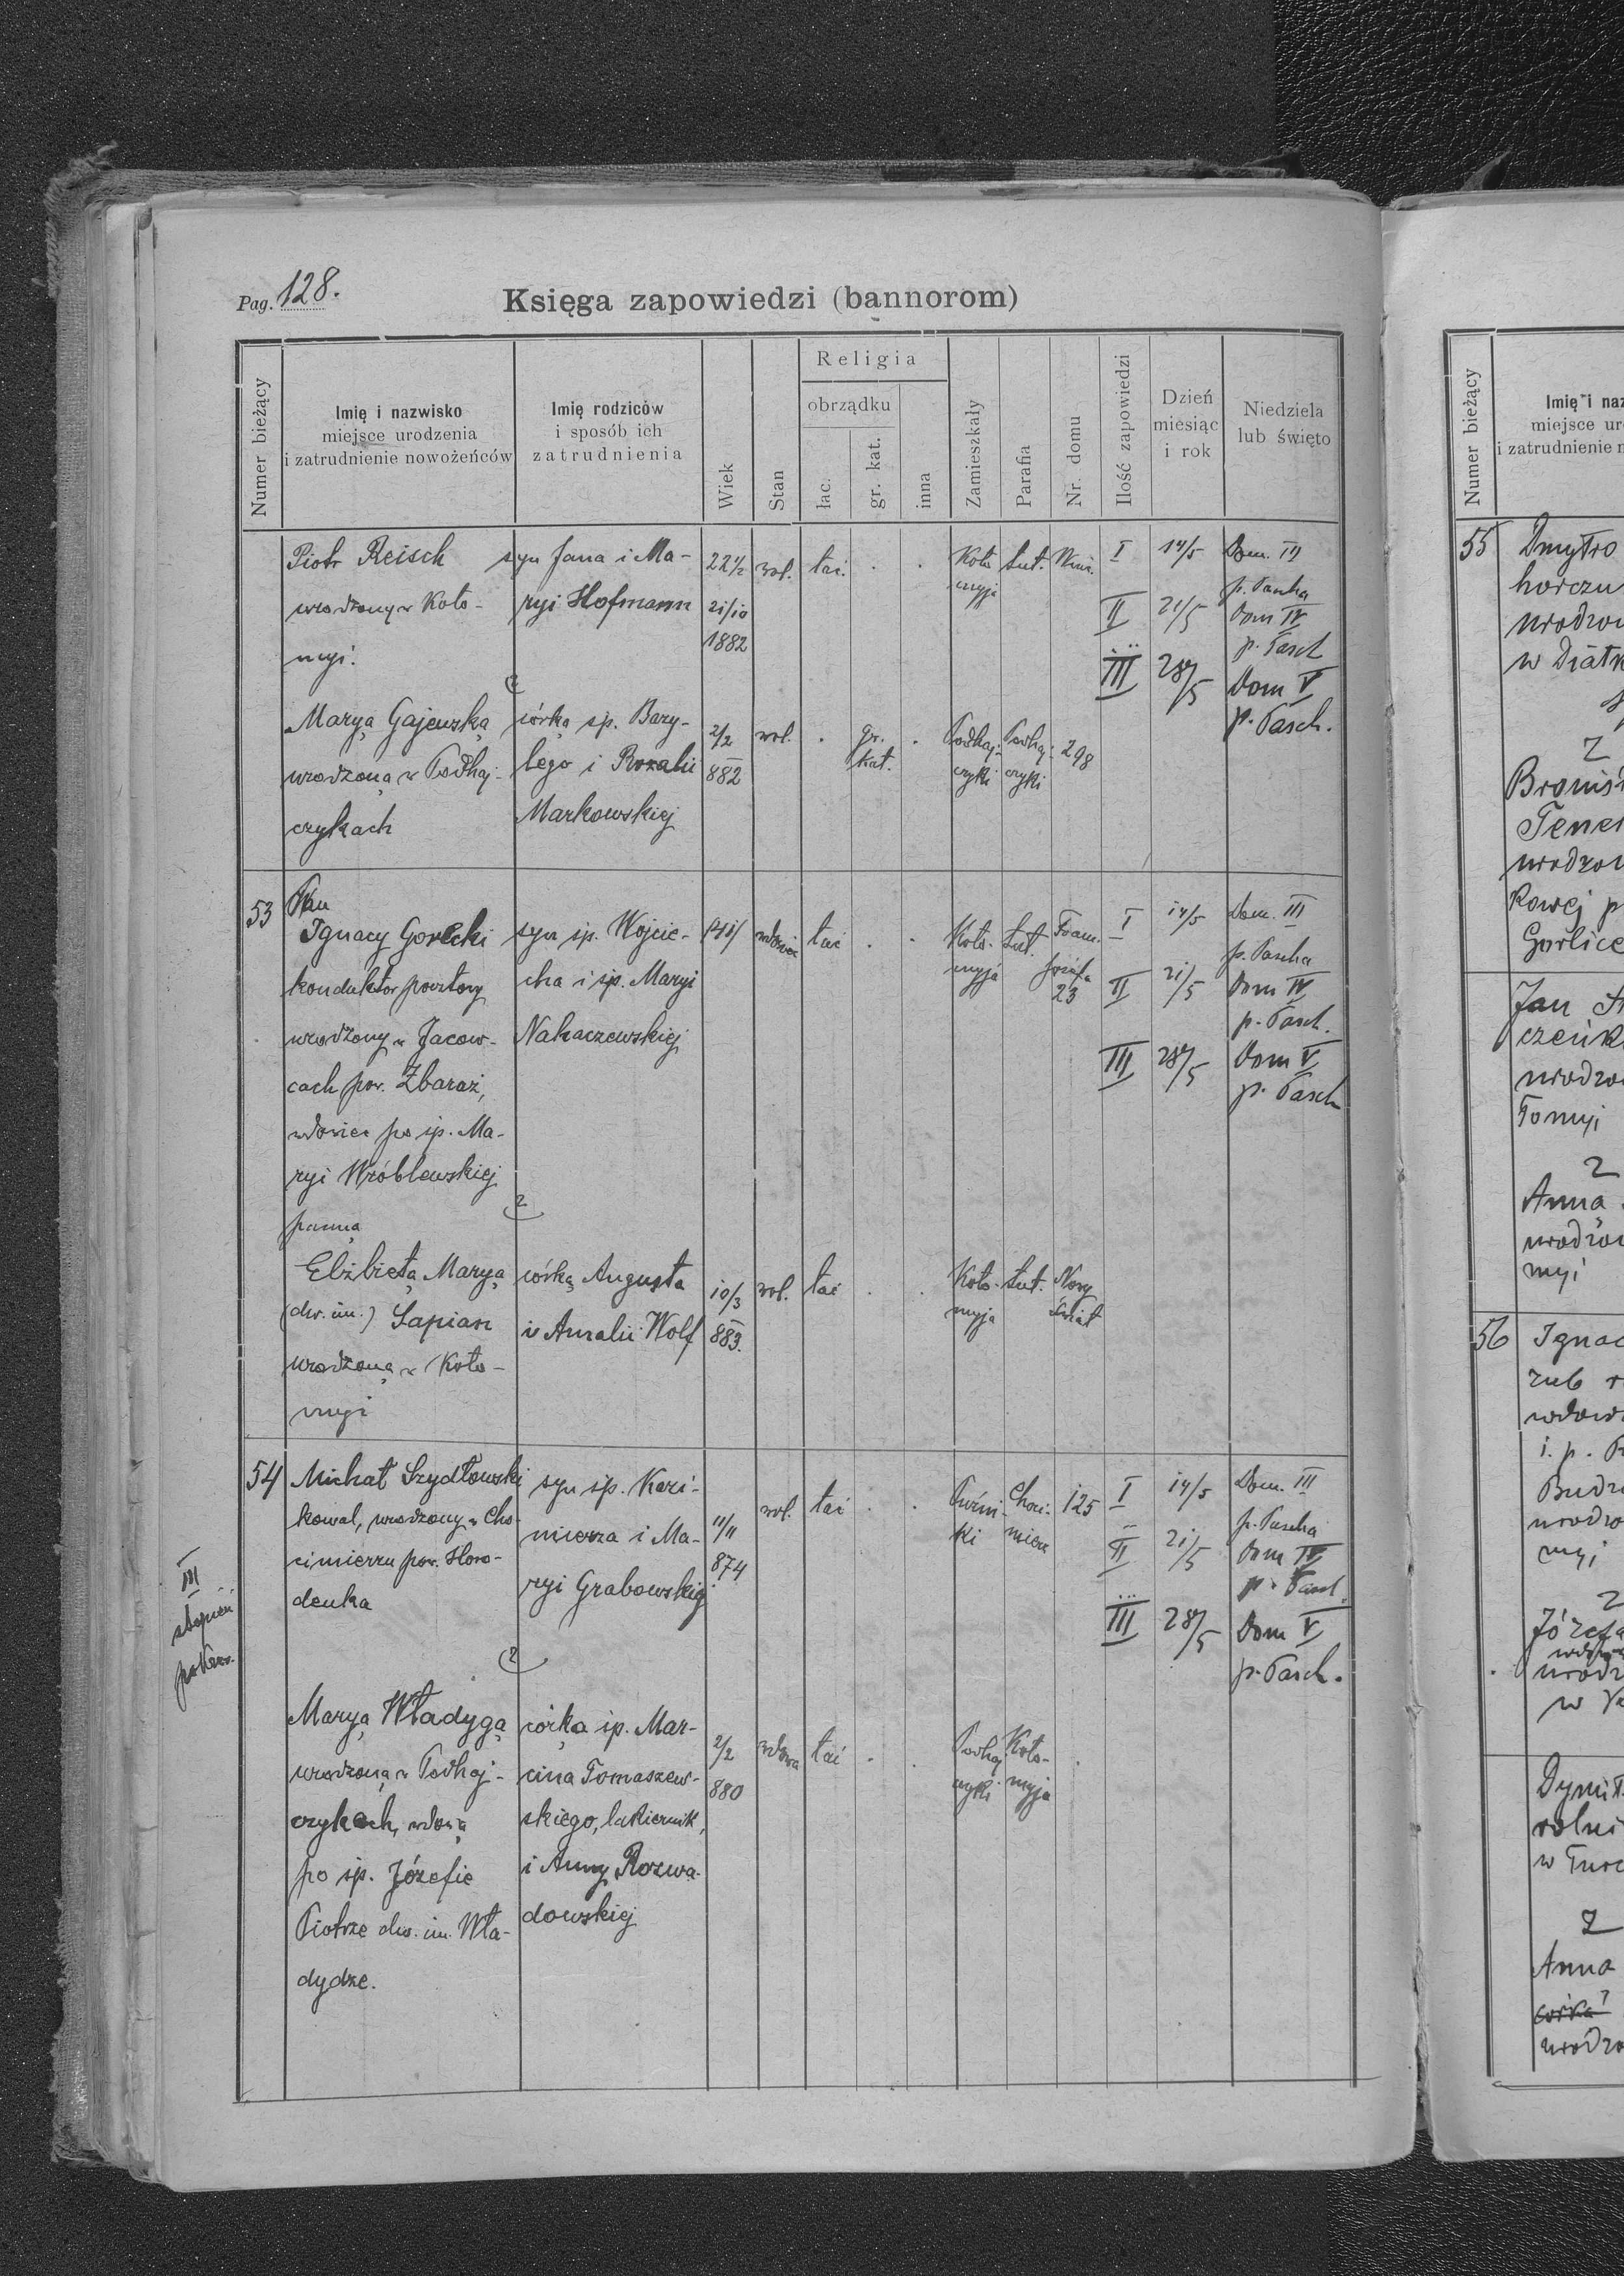 Pag. 128.
Księga zapowiedzi (bannorom)
Numer bieżący
Imię i nazwisko
miejsce urodzenia
i zatrudnienie nowożeńców
Imię rodziców
i sposób ich
zatrudnienia
Wiek
Stan
Religia
obrządku
łac.
gr. kat.
inna
Zamieszkały
Parafia
Nr. domu
Ilość zapowiedzi
Dzień
miesiąc
i rok
Niedziela
lub święto
Piotr Reisch
urodzony w Koło-
myi.
syn Jana i Ma-
ryi Hofmann
22 1/2
21/10
1882
wol.
łać.
Koło
myja
Łut.
I 14/5 Dom. III
p. Pascha
II 21/5 Dom IV
p. Pasch
III 28/5 Dom V
p. Pasch.
Marya Gajewska
urodzona w Podhaj-
czykach
córka śp. Bazy-
lego i Rozalii
Markowskiej
2/2
882
wol.
gr.
kat.
Podhaj-
czyki
Podhaj-
czyki
298
53
Pan
Ignacy Gorecki
konduktor pocztowy
urodzony w Jacow-
cach pow. Zbaraż,
wdowiec po śp. Ma-
ryi Wróblewskiej
syn śp. Wojcie-
cha i śp. Maryi
Nakaczewskiej
wdowiec
łać
Koło-
myja
Łut.
Józefa
23
I 14/5 Dom. III
p. Pascha
II 21/5 Dom IV
p. Pasch.
III 28/5 Dom V
p. Pasch
z
panna
Elżbieta Marya
(dw. im.) Lapian
urodzona w Koło-
myi
córka Augusta
i Amalii Wolf
10/3
883.
wol.
łać
Koło-
myja
Łut.
Nowy
świat
54
Michał Szydłowski
kowal, urodzony w Cho-
cimierzu pow. Horo-
denka
syn śp. Kazi-
mierza i Ma-
ryi Grabowskiej
11/11
874
wol.
łać
Choci-
mierz
125
I 14/5 Dom. III
p. Pascha
II 21/5 Dom IV
p. Pasch.
III 28/5 Dom V
p. Pasch.
III
stopień
pokrew.
z
Marya Władyga
urodzona w Podhaj-
czykach, wdowa
po śp. Józefie
Piotrze dw. im. Wła-
dydze.
córka śp. Mar-
cina Tomaszew-
skiego, lakiernik,
i Anny Rozwa-
dowskiej
2/2
880
wdowa
łać
Podhaj
czyki
Koło-
myja
Numer bieżący
Imię i naz
miejsce ur
i zatrudnienie n
55
Dmytro
horczu
urodzo
w Diatk
z
Bronisł
Tener
urodzo
kowej p
Gorlice
Jan
czeńk
urodzo
łomyi
z
Anna
urodzo
myi
56
Ignac
zub r
wdow
i. p.
Budz
urodzo
myi
z
Józefa
urodz
w
Dymit
rolni
w Turc
z
Anna
córka
urodzo